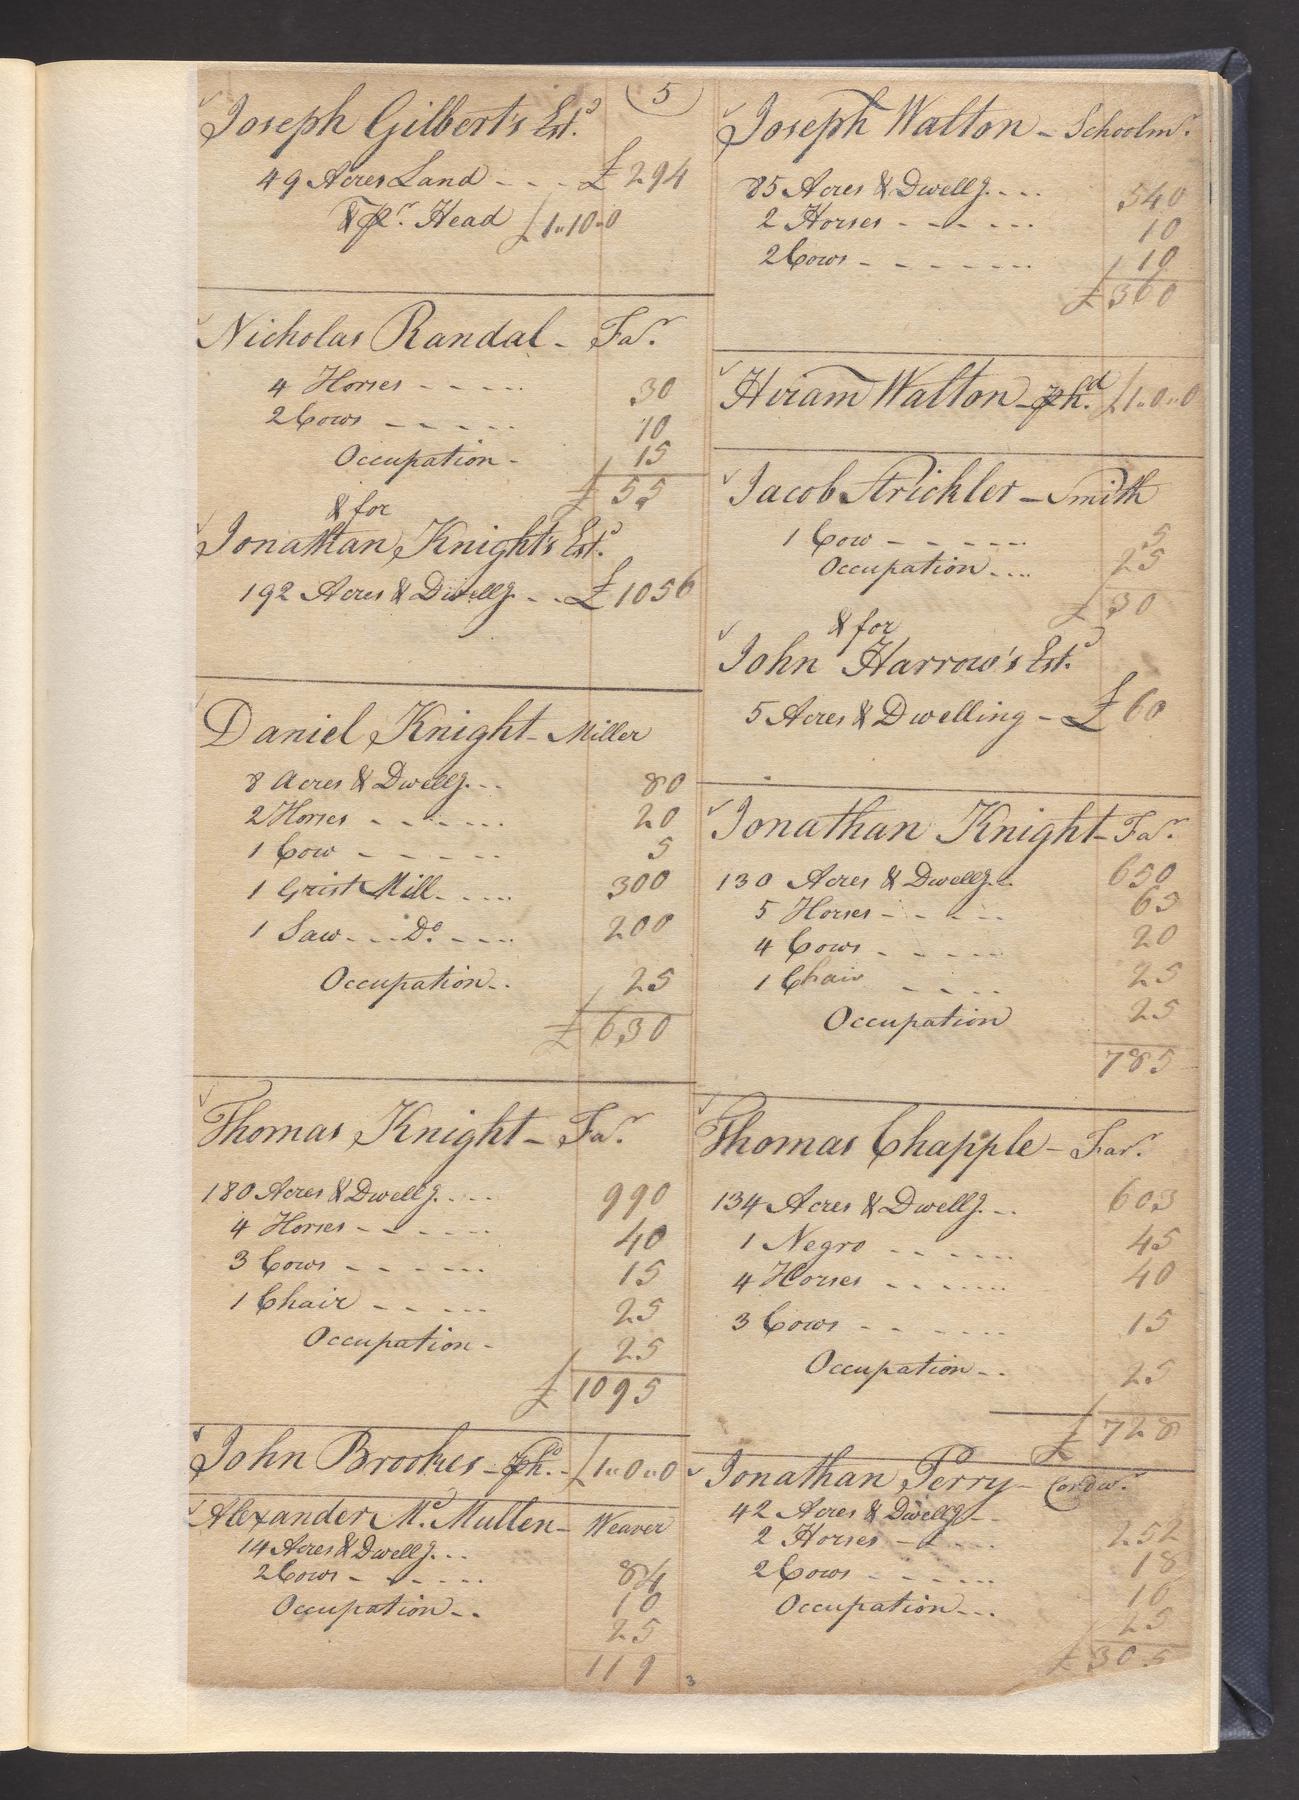 5
Joseph Gilbert's Est.d
49 Acres Land - - - £294
& pr. Head £1"10"0
Nicholas Randal - Far.
4 Horses - - - - - 30
2 Cows - - - - - 10
Occupation - 15
£55
& for
Jonathan Knight's Est.d
192 Acres & Dwellg. - - £1056
Daniel Knight - Miller
8 Acres & Dwellg. - - 80
2 Horses - - - - - - 20
1 Cow - - - - - - 5
1 Grist Mill - - - - 300
1 Saw - - - Do. - - - - 200
Occupation - - 25
£630
Thomas Knight - Far.
180 Acres & Dwellg. - - - 990
4 Horses - - - - - - 40
3 Cows - - - - - - 15
1 Chair - - - - - 25
Occupation - 25
£1095
John Brookes - £1"0"0
Alexander Mc. Mullen - Weaver
14 Acres & Dwellg. - - 84
2 Cows - - - - - - 10
Occupation - - 25
119
3
Joseph Walton - Schoolmr.
85 Acres & Dwellg. - - - 540
2 Horses - - - - - - 10
2 Cows - - - - - - - 10
£360
Hiram Walton - £1"0"0
Jacob Strickler - Smith
1 Cow - - - - - - 5
Occupation - - - 25
£30
& for
John Harrow's Est.d
5 Acres & Dwelling - £60
Jonathan Knight - Far.
130 Acres & Dwellg. - 650
5 Horses - - - - - 65
4 Cows - - - - - - 20
1 Chair - - - - 25
Occupation 25
785
Thomas Chapple - Far.
134 Acres & Dwellg. - - 603
1 Negro - - - - - - 45
4 Horses - - - - - - 40
3 Cows - - - - - - - 15
Occupation - - 25
£728
Jonathan Perry - Cordwr.
42 Acres & Dwellg - - 252
2 Horses - - - - - 18
2 Cows - - - - - - 10
Occupation - - - 25
£305